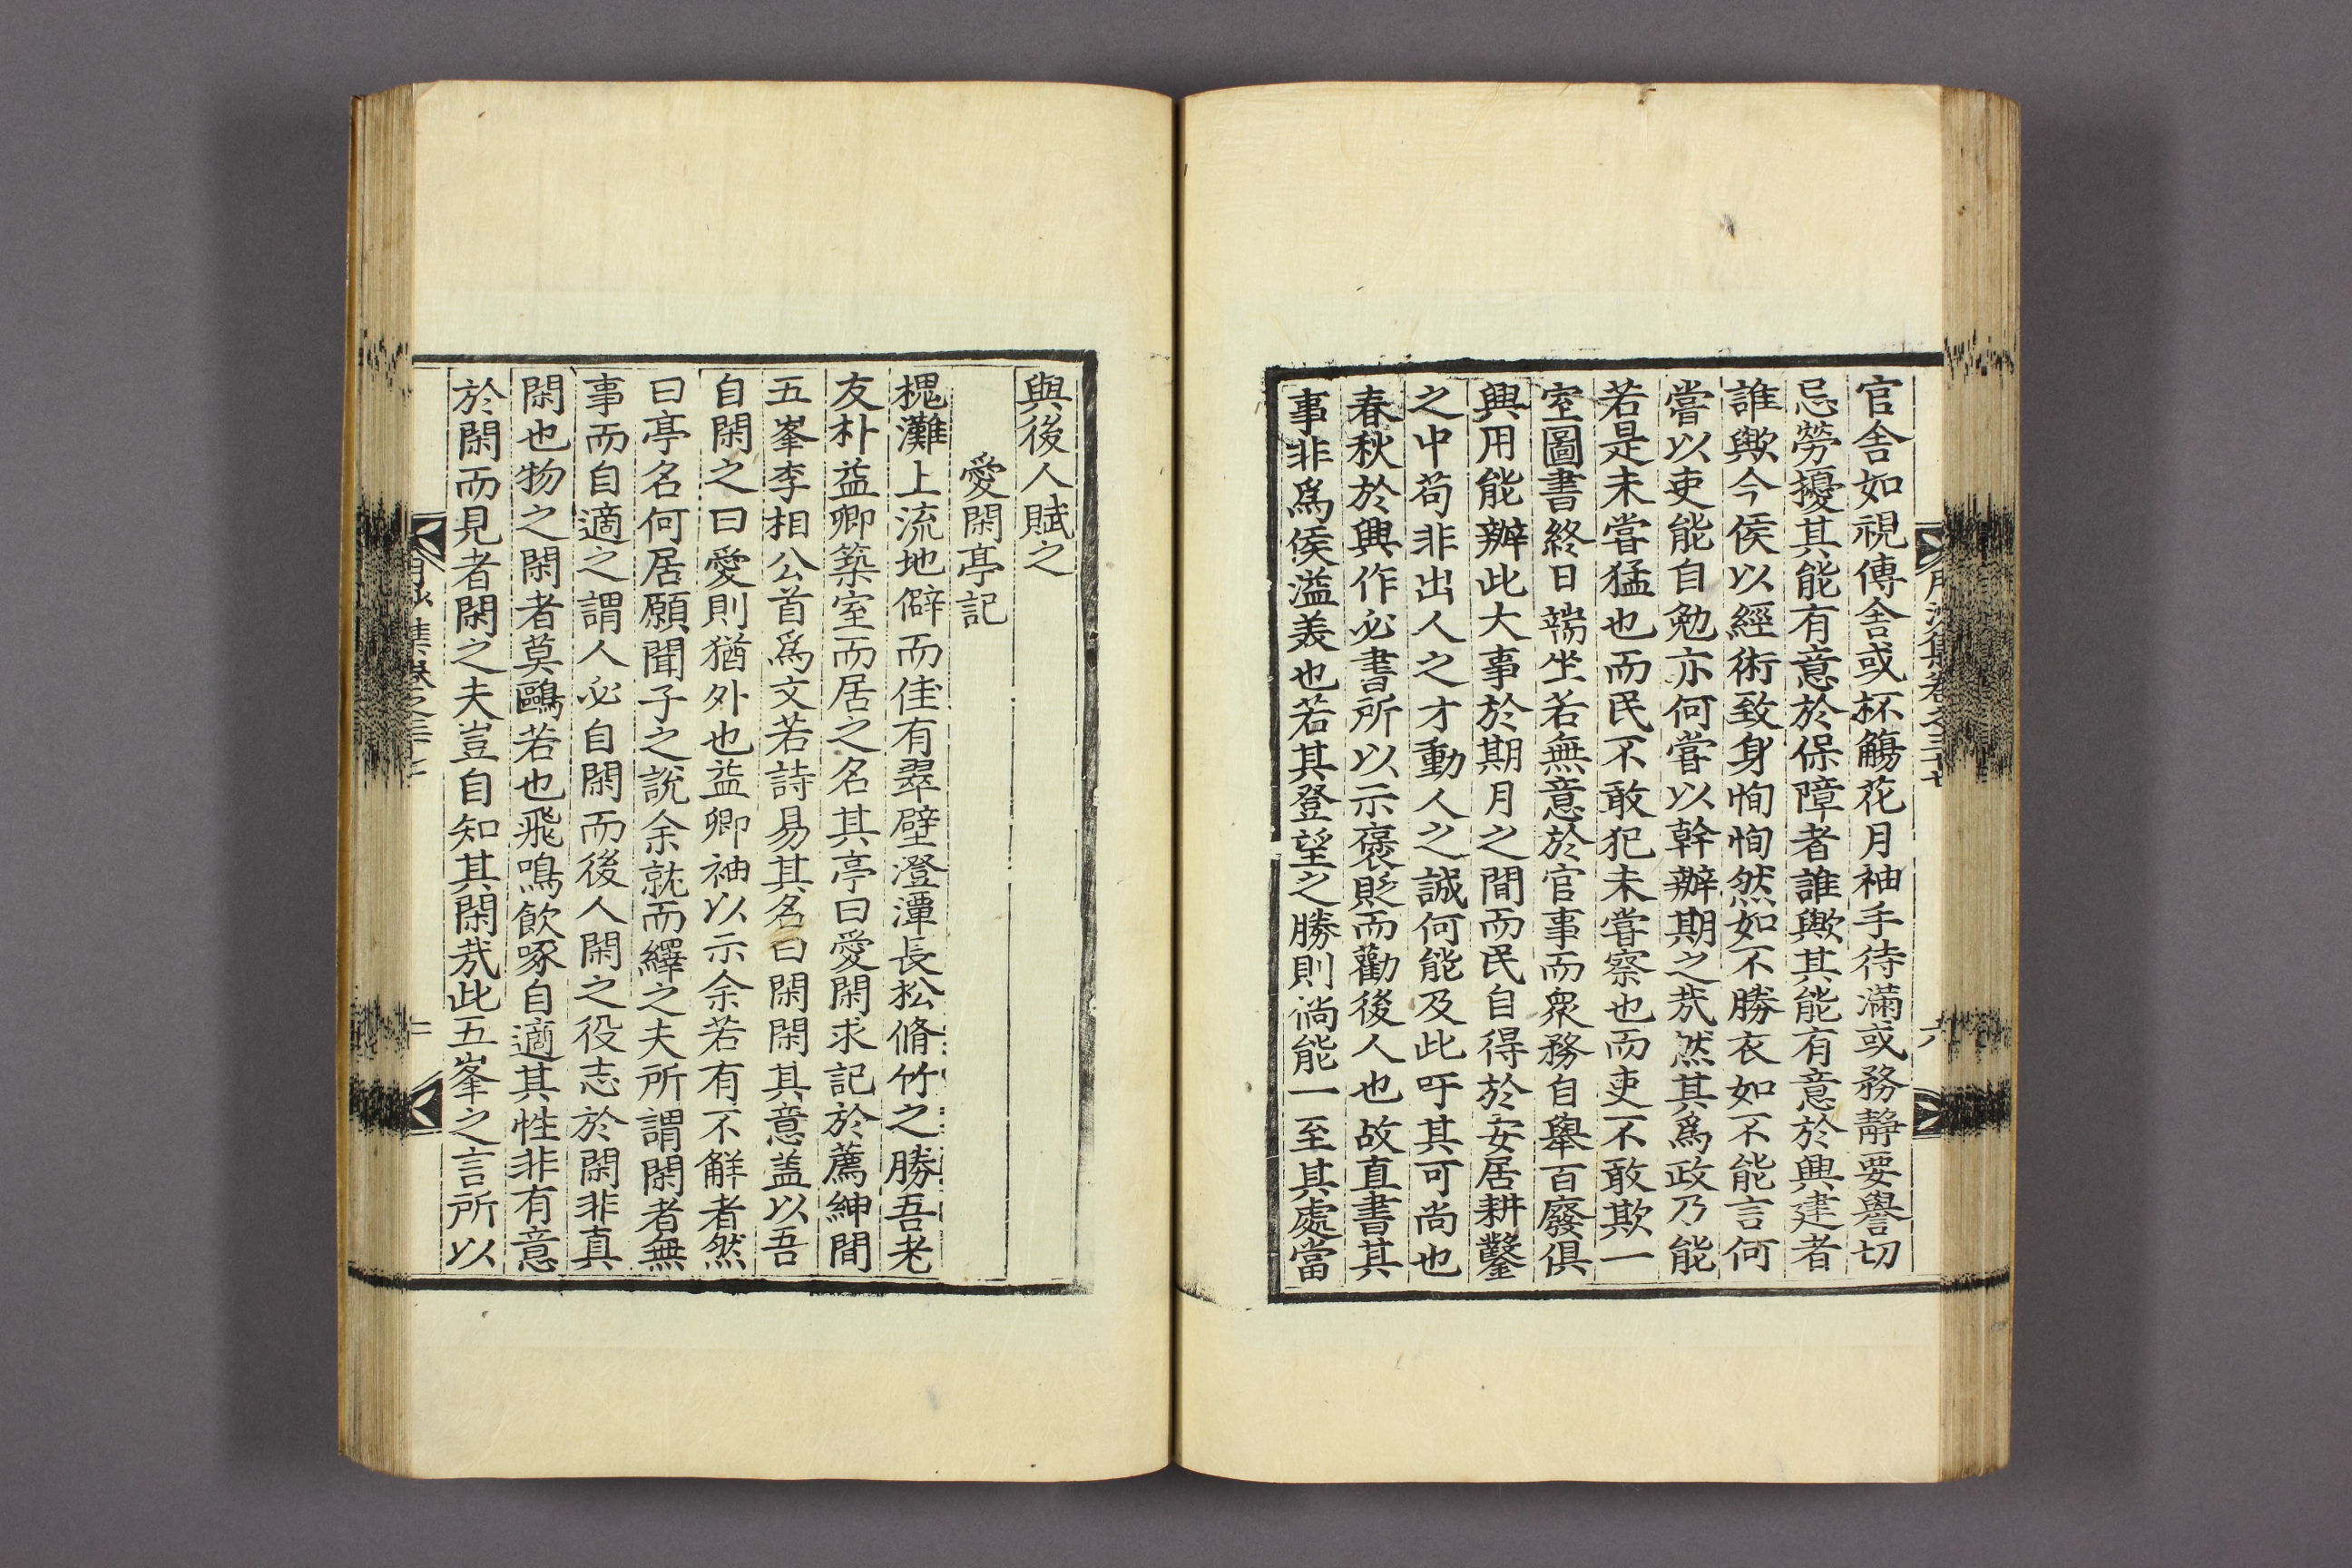 官舍如視傳舍或杯觴花月袖手待滿或務靜要譽切
忌勞擾其能有意於保障者誰歟其能有意於興建者
誰歟今侯以經術致身恂恂然如不勝衣如不能言何
嘗以吏能自勉亦何嘗以幹辦期之哉然其爲政乃能
若是未嘗猛也而民不敢犯未嘗察也而吏不敢欺一
室圖書終日端坐若無意於官事而衆務自舉百廢俱
興用能辦此大事於期月之間而民自得於安居耕鑿
之中苟非出人之才動人之誠何能及此吁其可尚也
春秋於興作必書所以示褒貶而勸後人也故直書其
事非爲侯溢美也若其登望之勝則倘能一至其處當
與後人賦之
愛閑亭記
槐灘上流地僻而佳有翠壁澄潭長松脩竹之勝吾老
友朴益卿築室而居之名其亭曰愛閑求記於薦紳間
五峯李相公首爲文若詩易其名曰閑閑其意盖以吾
自閑之曰愛則猶外也益卿袖以示余若有不觧者然
曰亭名何居願聞子之說余就而繹之夫所謂閑者無
事而自適之謂人必自閑而後人閑之役志於閑非真
閑也物之閑者莫鷗若也飛鳴飮啄自適其性非有意
於閑而見者閑之夫豈自知其閑哉此五峯之言所以